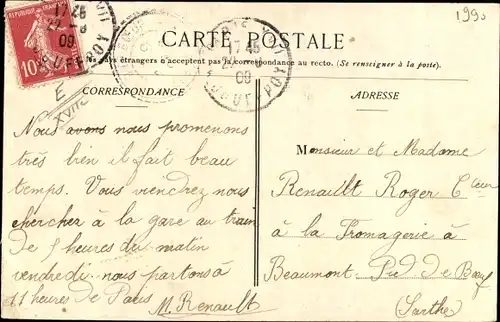 1990
CARTE POSTALE
pays étrangers n'acceptent pas la correspondance au recto. (Se renseigner à la poste).
CORRESPONDANCE
ADRESSE
10
17 45
09
17 45
09
E
XVIIe
Nous avons nous promenons
très bien il fait beau
temps. Vous viendrez nous
chercher à la gare au train
de 5 heures du matin
vendredi nous partons à
11 heures de Paris
M. Renault
Monsieur et Madame
Renaillt Roger Cteur
à la Fromagerie à
Beaumont-Pied de Bœuf
(Sarthe)